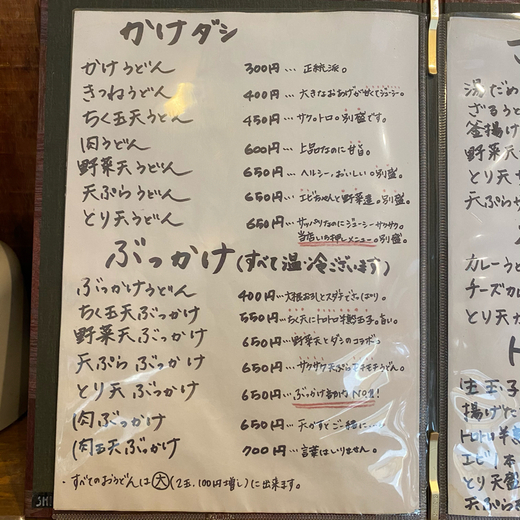 かけダシ
かけうどん 300円… 正統派。
きつねうどん 400円… 大きなおあげが甘くてジューシー。
ちく玉天うどん 450円… サク。トロ。別盛です。
肉うどん 600円… 上品なのに甘旨。
野菜天うどん 650円… ヘルシー、おいしい。別盛。
天ぷらうどん 650円… エビちゃんと野菜達。別盛。
とり天うどん 650円… サッパリなのにジューシーサクサク。
当店いち押しメニュー。別盛。
ぶっかけ(すべて温・冷ございます)
ぶっかけうどん 400円… 大根おろしとスダチでさっぱり。
ちく玉天ぶっかけ 550円… ちく天にトロトロ半熟玉子。旨い。
野菜天ぶっかけ 650円… 野菜天とダシのコラボ。
天ぷらぶっかけ 650円… サクサク天ぷらモチモチうどん。
とり天ぶっかけ 650円… ぶっかけ部内NO1!
肉ぶっかけ 650円… 天かすとご一緒に…
肉玉天ぶっかけ 700円… 言葉はいりません。
・すべてのおうどんは大(2玉、100円増し)に出来ます。
湯だめ
ざるうど
釜揚げ
とり天
天ぷらサ
カレーうど
チーズカレ
とり天
ト
生玉子
揚げたて
トロトロ半
エビ1本
とり天盛
天ぷら